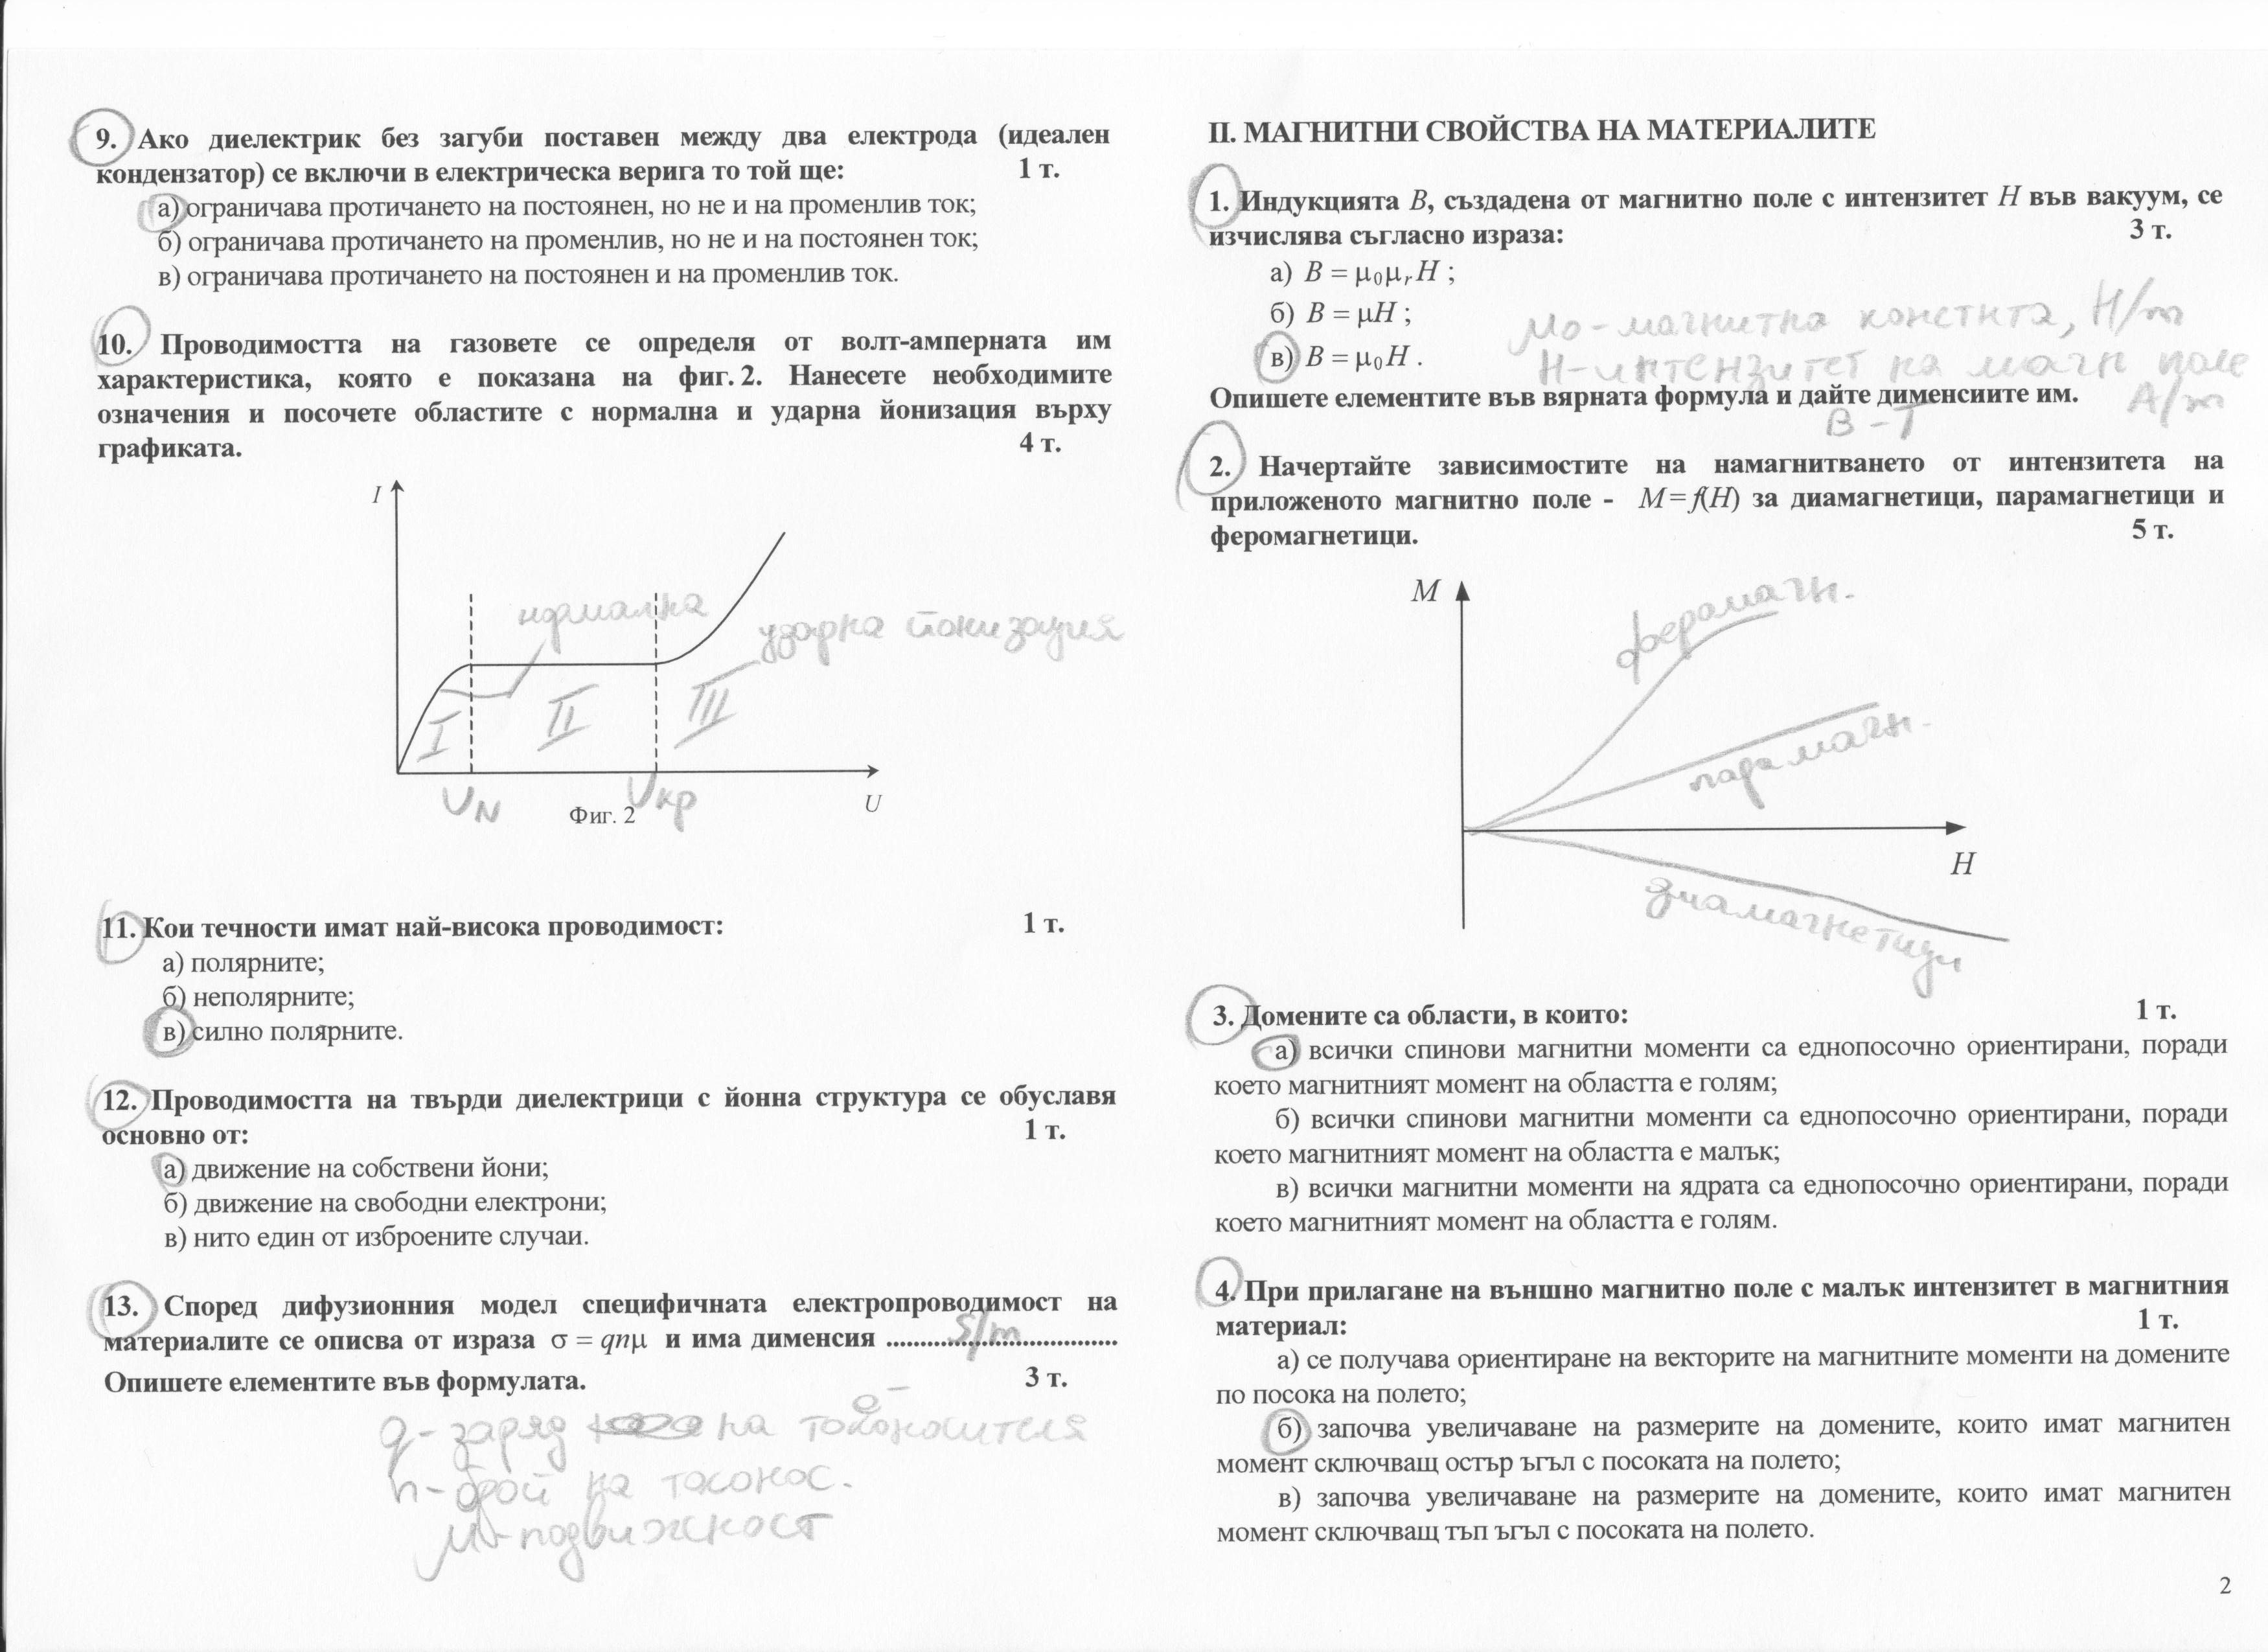 9. Ако диелектрик без загуби поставен между два електрода (идеален
кондензатор) се включи в електрическа верига то той ще: 1 т.
а) ограничава протичането на постоянен, но не и на променлив ток;
б) ограничава протичането на променлив, но не и на постоянен ток;
в) ограничава протичането на постоянен и на променлив ток.
10. Проводимостта на газовете се определя от волт-амперната им
характеристика, която е показана на фиг. 2. Нанесете необходимите
означения и посочете областите с нормална и ударна йонизация върху
графиката. 4 т.
I
нормална
ударна йонизация
I II III
U
UN Uкр
Фиг. 2
11. Кои течности имат най-висока проводимост: 1 т.
а) полярните;
б) неполярните;
в) силно полярните.
12. Проводимостта на твърди диелектрици с йонна структура се обуславя
основно от: 1 т.
а) движение на собствени йони;
б) движение на свободни електрони;
в) нито един от изброените случаи.
13. Според дифузионния модел специфичната електропроводимост на
материалите се описва от израза σ = qnμ и има дименсия ........ S/m ........
Опишете елементите във формулата. 3 т.
e⁻
q - заряд на токоносителя
n - брой на таконос.
μ - подвижност
II. МАГНИТНИ СВОЙСТВА НА МАТЕРИАЛИТЕ
1. Индукцията B, създадена от магнитно поле с интензитет H във вакуум, се
изчислява съгласно израза: 3 т.
а) B = μ₀μᵣH ;
б) B = μH ;
в) B = μ₀H .
μо - магнитна констнта, H/m
H - интензитет на магн поле
A/m
Опишете елементите във вярната формула и дайте дименсиите им.
B - T
2. Начертайте зависимостите на намагнитването от интензитета на
приложеното магнитно поле - M=f(H) за диамагнетици, парамагнетици и
феромагнетици. 5 т.
M
ферамагн.
парамагн.
H
диамагнетици
3. Домените са области, в които: 1 т.
а) всички спинови магнитни моменти са еднопосочно ориентирани, поради
което магнитният момент на областта е голям;
б) всички спинови магнитни моменти са еднопосочно ориентирани, поради
което магнитният момент на областта е малък;
в) всички магнитни моменти на ядрата са еднопосочно ориентирани, поради
което магнитният момент на областта е голям.
4. При прилагане на външно магнитно поле с малък интензитет в магнитния
материал: 1 т.
а) се получава ориентиране на векторите на магнитните моменти на домените
по посока на полето;
б) започва увеличаване на размерите на домените, които имат магнитен
момент сключващ остър ъгъл с посоката на полето;
в) започва увеличаване на размерите на домените, които имат магнитен
момент сключващ тъп ъгъл с посоката на полето.
2